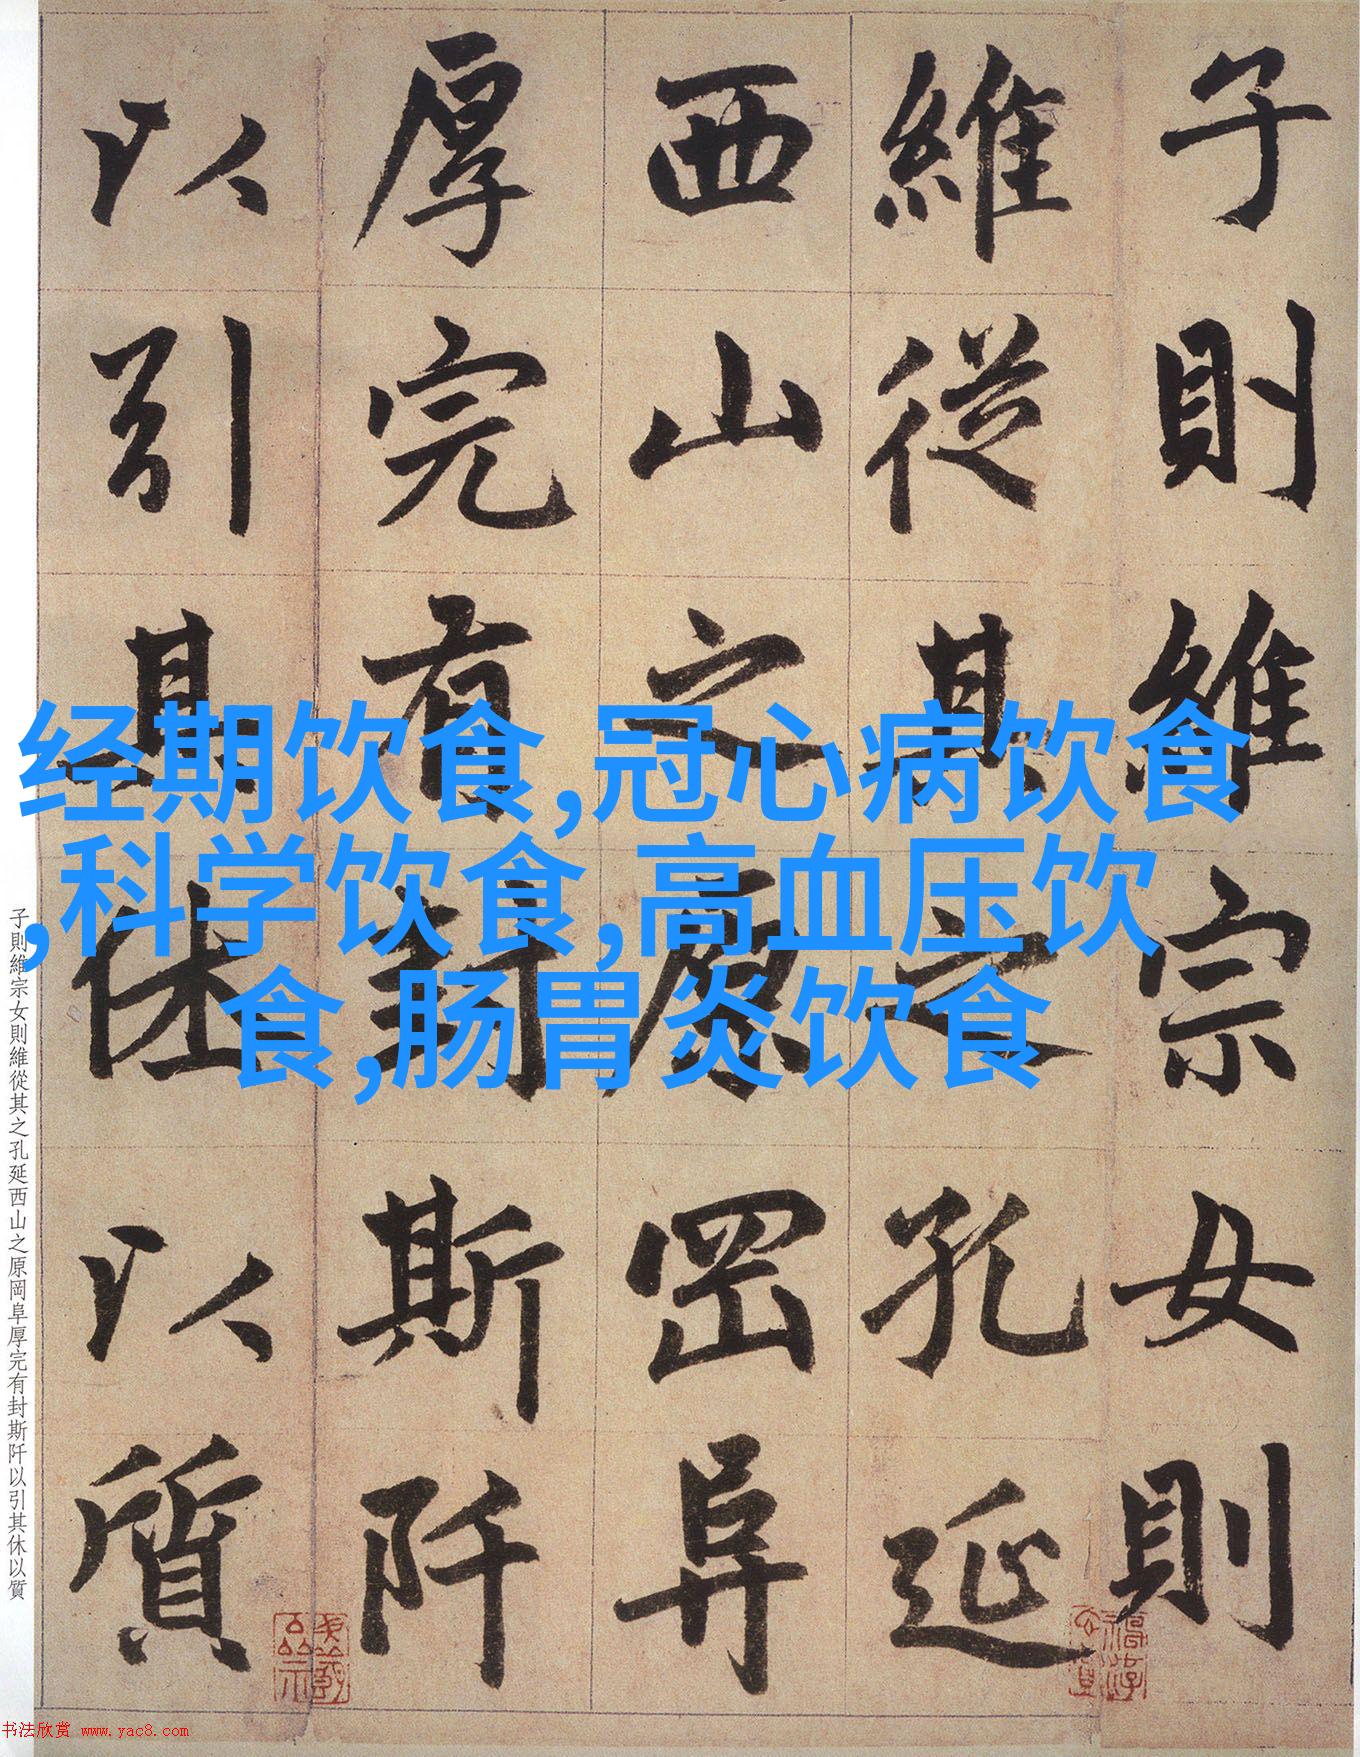 子則維宗女則
維從其之孔延
西山之原岡阜
厚完有封斯阡
以引其休以質
经期饮食,冠心病饮食
,科学饮食,高血压饮
食,肠胃炎饮食
子則維宗女則維從其之孔延西山之原岡阜厚完有封斯阡以引其休以質
书法欣赏 www.yac8.com